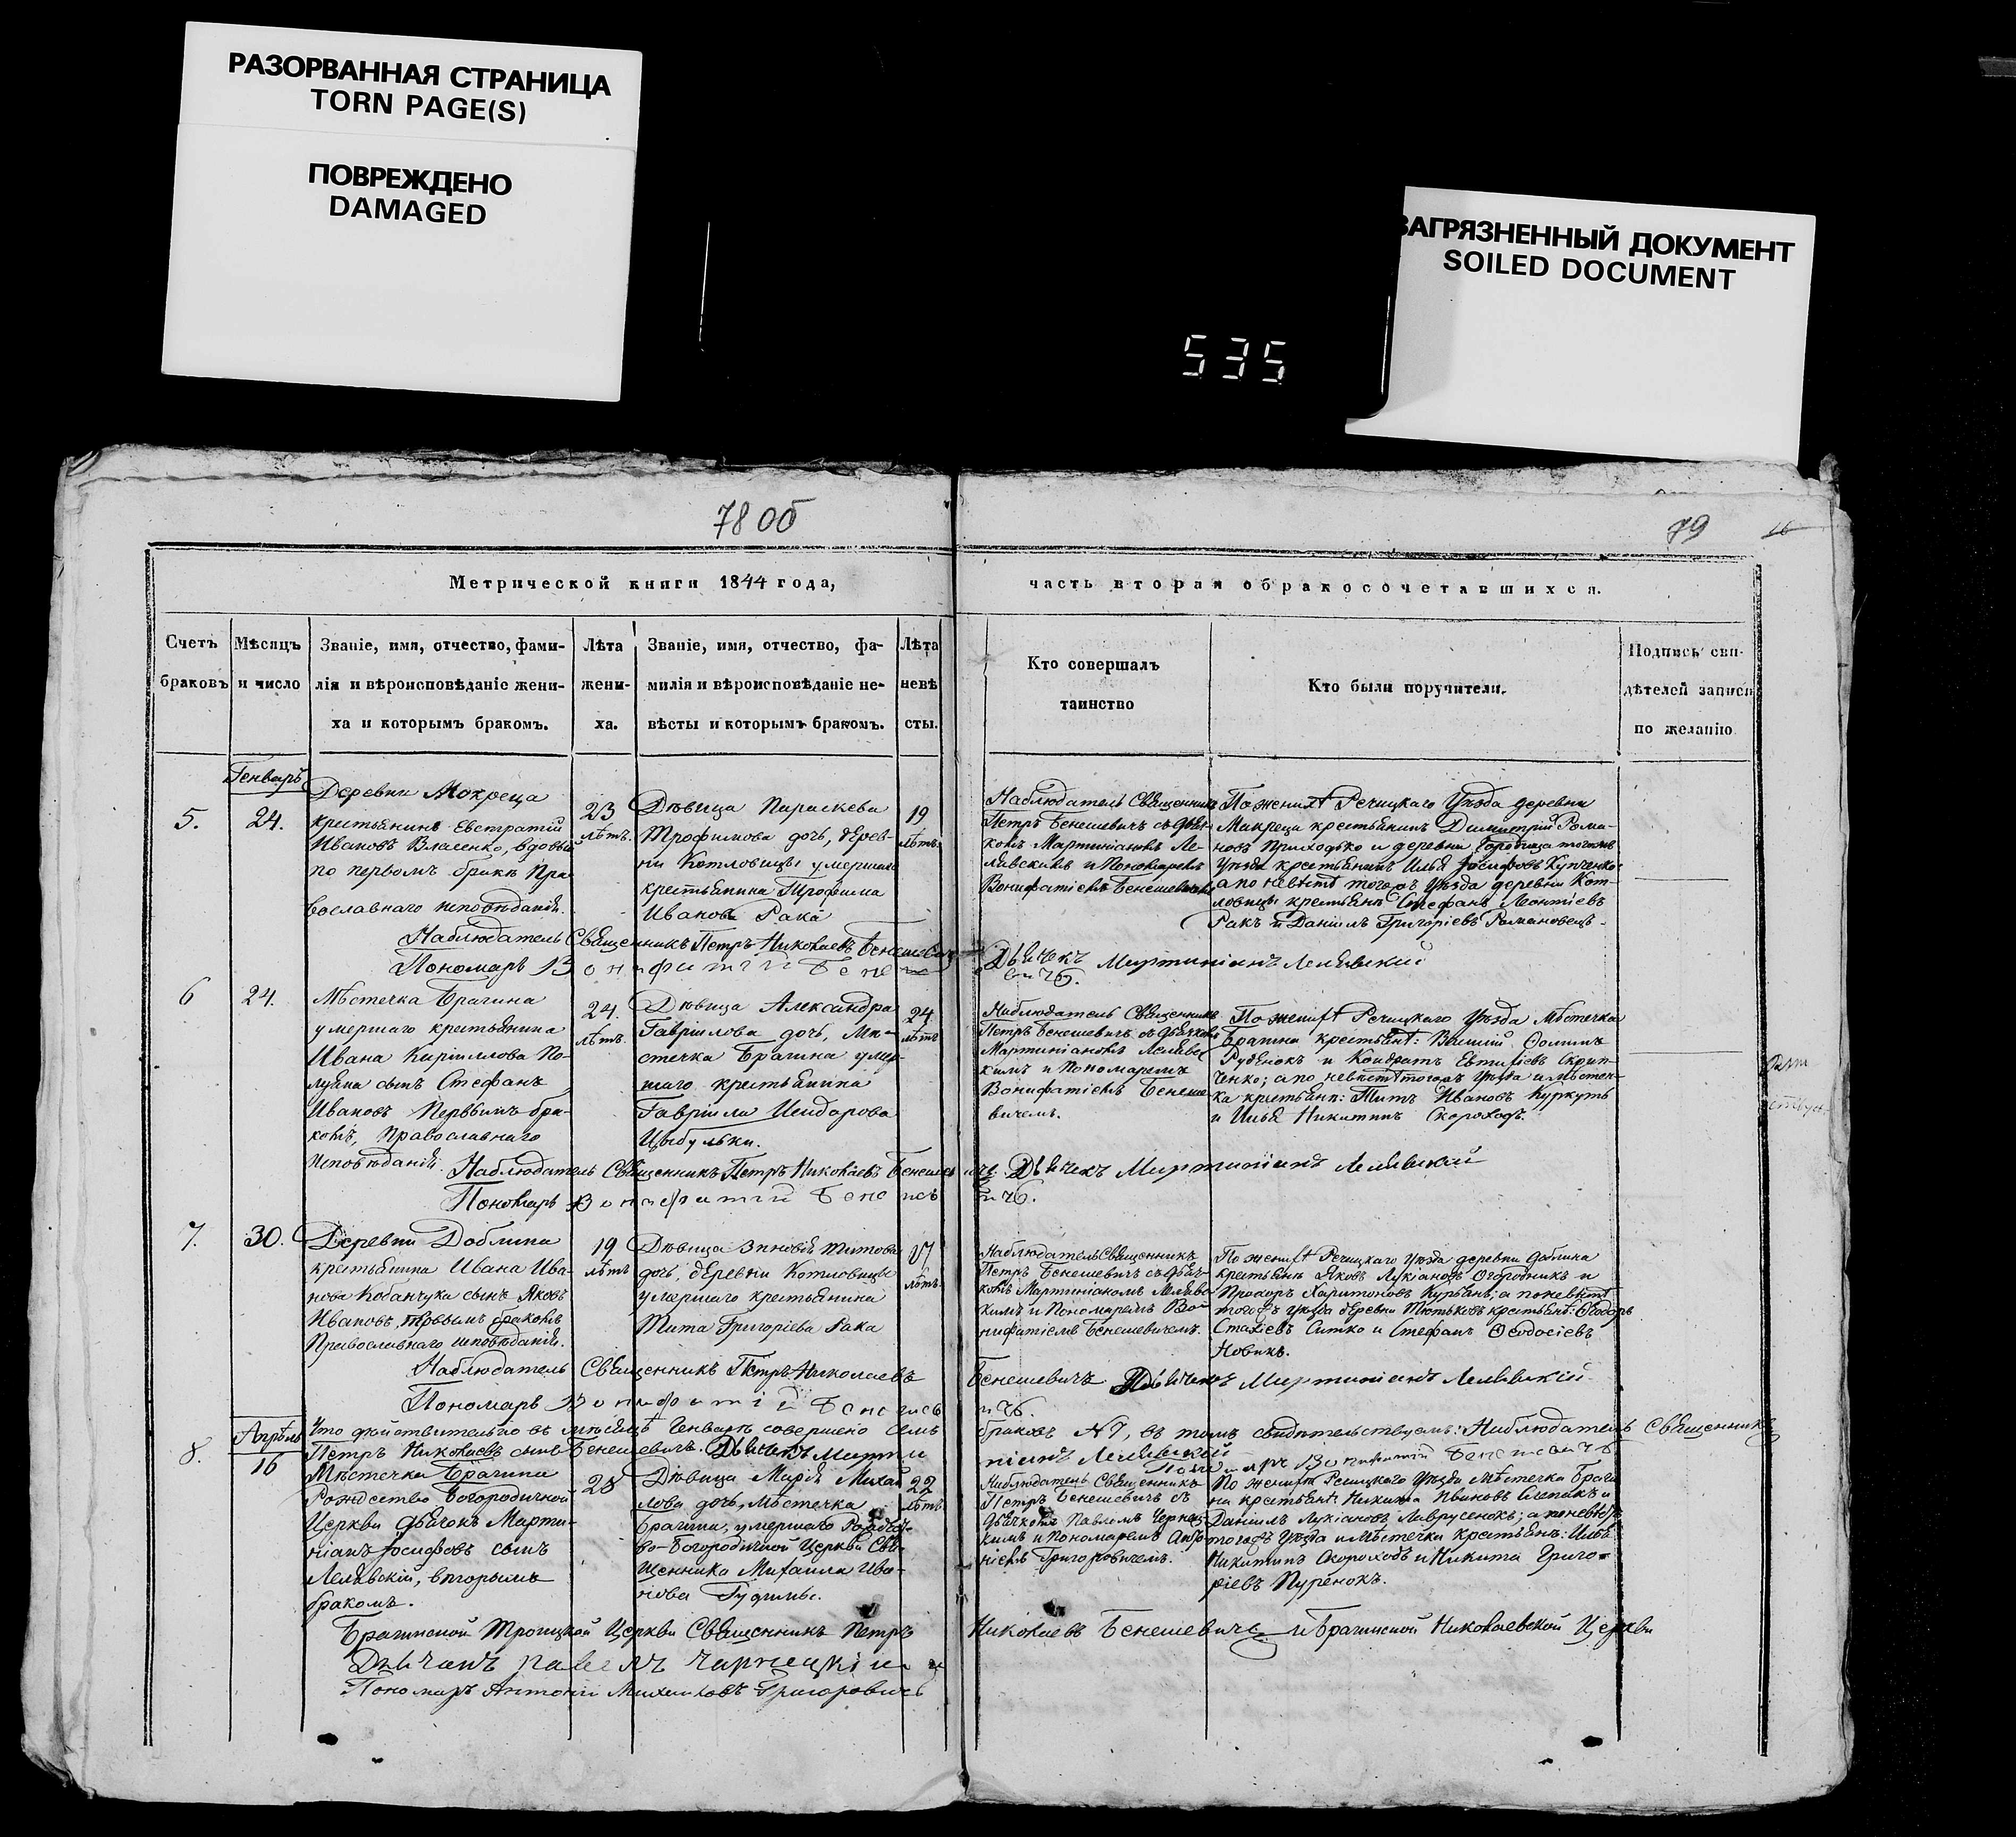 РАЗОРВАННАЯ СТРАНИЦА
TORN PAGE(S)
ПОВРЕЖДЕНО
DAMAGED
ЗАГРЯЗНЕННЫЙ ДОКУМЕНТ
SOILED DOCUMENT
535
78 об
79
16
Метрической книги 1844 года,
часть вторая о бракосочетавшихся.
Счетъ браковъ
Мѣсяцъ и число
Званіе, имя, отчество, фами-
лія и вѣроисповѣданіе жени-
ха и которымъ бракомъ.
Лѣта
жени-
ха.
Званіе, имя, отчество, фа-
милія и вѣроисповѣданіе не-
вѣсты и которымъ бракомъ.
Лѣта
невѣ
сты.
Кто совершалъ
таинство
Кто были поручители.
Подпись сви-
дѣтелей записи
по желанію
Генварь
5.
24.
Деревни Мокреца
крестьянинъ Евстратій
Ивановъ Власенко, вдовый
по первомъ бракѣ Пра
вославнаго исповѣданія.
23
лѣтъ.
Дѣвица Параскева
Трофимова дочь, дерев-
ни Котловицы умершаго
крестьянина Трофима
Иванова Рака
19
лѣтъ.
Наблюдатель Священникъ
Петръ Бенешевичъ съ дьяч-
комъ Мартиніаномъ Ле-
лявскимъ и Пономаремъ
Вонифатіемъ Бенешевичемъ
По женихѣ Речицкаго Уѣзда деревни
Макреца крестьянинъ Димитрій Рома-
новъ Приходько и деревни Городища тогожъ
Уѣзда крестьянинъ Илья Іосифовъ Купченко
а по невѣстѣ тогожъ Уѣзда деревни Кот-
ловицы крестьяне Стефанъ Леонтіевъ
Ракъ и Даніилъ Григоріевъ Романовецъ.
Наблюдатель Священникъ Петръ Николаевъ Бенешевичъ Дьячекъ Мартиніанъ Лелявскій
Пономарь Вонифатій Бенешевичъ.
6
24.
Мѣстечка Брагина
умершаго крестьянина
Ивана Кириллова По-
луяна сынъ Стефанъ
Ивановъ Первымъ бра-
комъ, Православнаго
исповѣданія.
24.
лѣтъ.
Дѣвица Александра
Гавріилова дочь, Мѣ-
стечка Брагина умер-
шаго крестьянина
Гавріила Исидорова
Цыбульки.
24
лѣтъ
Наблюдатель Священникъ
Петръ Бенешевичъ съ дьячкомъ
Мартиніаномъ Лелявс
кимъ и Пономаремъ
Вонифатіемъ Бенеше
вичемъ.
По женихѣ Речицкаго Уѣзда Мѣстечка
Брагина крестьяне: Василій Ѳоминъ
Руденокъ и Кондратъ Евтихіевъ Скрип-
ченко; а по невѣстѣ тогожъ Уѣзда и мѣстеч-
ка крестьяне: Титъ Ивановъ Куркуть
и Илья Никитинъ Скороходъ.
Наблюдатель Священникъ Петръ Николаевъ Бенешевичъ. Дьячекъ Мартиніанъ Лелявскій
Пономарь Вонифатій Бенешевичъ.
7.
30.
Деревни Доблина
крестьянина Ивана Ива-
нова Кобанчука сынъ Яковъ
Ивановъ, первымъ бракомъ
Православнаго исповѣданія.
19
лѣтъ
Дѣвица Зиновія Титова
дочь, деревни Котловицы
умершаго крестьянина
Тита Григоріева Рака
17
лѣтъ.
Наблюдатель Священникъ
Петръ Бенешевичъ съ дьяч-
комъ Мартиніаномъ Лелявс
кимъ и Пономаремъ Во-
нифатіемъ Бенешевичемъ.
По женихѣ Речицкаго Уѣзда деревни Доблина
крестьяне Яковъ Лукіановъ Огородникъ и
Прохоръ Харитоновъ Курьянъ; а по невѣстѣ
тогожъ уѣзда деревни Тютьковъ крестьяне: Ѳедоръ
Стахіевъ Ситко и Стефанъ Ѳеодосіевъ
Новикъ.
Наблюдатель Священникъ Петръ Николаевъ Бенешевичъ Дьячекъ Мартиніанъ Лелявскій
Пономарь Вонифатій Бенешевичъ.
Что дѣйствительно въ мѣсяцѣ Генварѣ совершено семь браковъ №7, въ томъ свидѣтельствуемъ: Наблюдатель Священникъ
Петръ Николаевъ сынъ Бенешевичъ. Дьячекъ Мартиніанъ Лелявскій
Пономарь Вонифатій Бенешевичъ
Апрѣль
8.
16
Мѣстечка Брагина
Рождество Богородичной
Церкви дьячокъ Марти-
ніанъ Іосифовъ сынъ
Лелявскій, вторымъ
бракомъ.
28
Дѣвица Марія Михаи
лова дочь, Мѣстечка
Брагина, умершаго Рождест-
во-Богородичной Церкви Свя-
щенника Михаила Ива-
нова Гудимы.
22
лѣтъ
Наблюдатель Священникъ
Петръ Бенешевичъ съ
Дьячкомъ Павломъ Чернец-
кимъ и Пономаремъ Анто
ніемъ Григоровичемъ.
По женихѣ Речицкаго Уѣзда Мѣстечка Браги
на крестьяне Никита Ивановъ Слепакъ и
Даніилъ Лукіановъ Лаврусенокъ; а по невѣстѣ
тогожъ Уѣзда и Мѣстечка крестьяне: Илья
Никитинъ Скороходъ и Никита Григо-
ріевъ Пуренокъ.
Брагинской Троицкой Церкви Священникъ Петръ Николаевъ Бенешевичъ и Брагинской Николаевской Церкви
Дьячекъ Павелъ Чарнецкій и
Пономарь Антоній Михаиловъ Григоровичъ